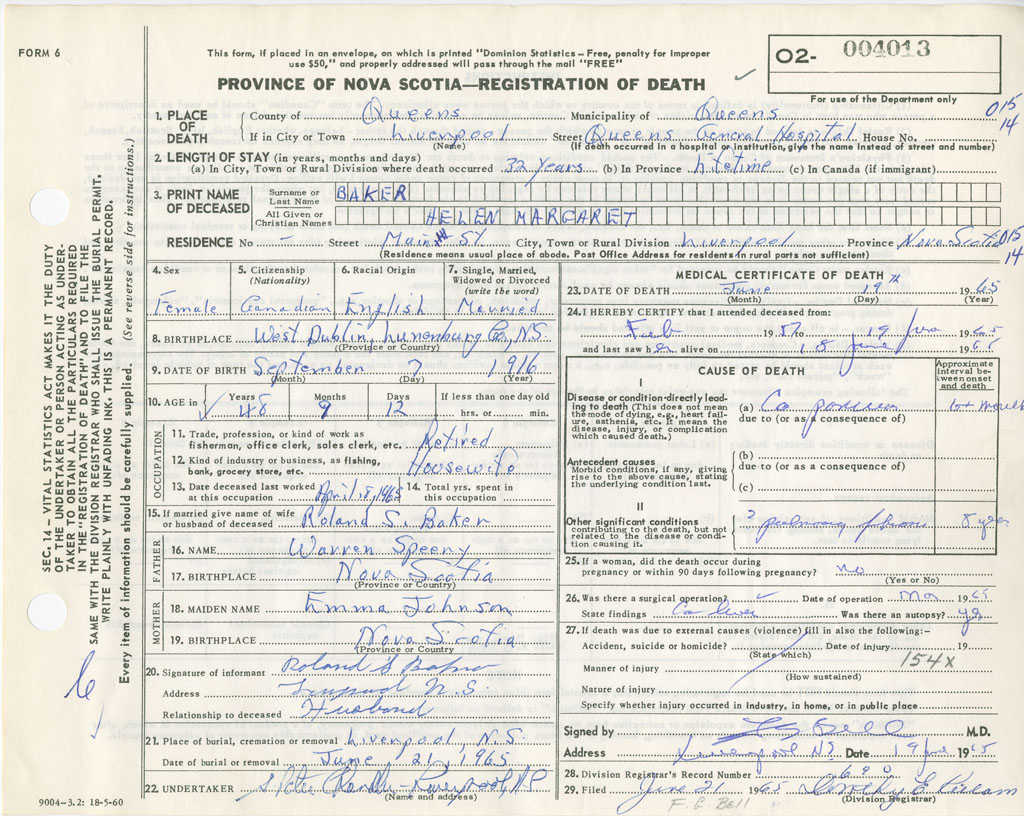 FORM 6
This form, if placed in an envelope, on which is printed "Dominion Statistics – Free, penalty for improper
use $50," and properly addressed will pass through the mail "FREE"
PROVINCE OF NOVA SCOTIA—REGISTRATION OF DEATH
O2- 004013
For use of the Department only
015
14
1. PLACE OF DEATH
County of Queens Municipality of Queens
If in City or Town Liverpool Street Queens General Hospital House No.
(Name) (If death occurred in a hospital or institution, give the name instead of street and number)
2. LENGTH OF STAY (in years, months and days)
(a) In City, Town or Rural Division where death occurred 32 years (b) In Province Lifetime (c) In Canada (if immigrant)
3. PRINT NAME OF DECEASED
Surname or Last Name BAKER
All Given or Christian Names HELEN MARGARET
RESIDENCE No – Street Main St City, Town or Rural Division Liverpool Province Nova Scotia 015
14
(Residence means usual place of abode. Post Office Address for residents in rural parts not sufficient)
4. Sex Female
5. Citizenship (Nationality) Canadian
6. Racial Origin English
7. Single, Married, Widowed or Divorced (write the word) Married
8. BIRTHPLACE West Dublin, Lunenburg Co, NS
(Province or Country)
9. DATE OF BIRTH September 7 1916
(Month) (Day) (Year)
10. AGE in Years 48 Months 9 Days 12 If less than one day old hrs. or min.
OCCUPATION
11. Trade, profession, or kind of work as fishing, office clerk, sales clerk, etc. Retired
12. Kind of industry or business, as fishing, bank, grocery store, etc. Housewife
13. Date deceased last worked at this occupation April 18, 1965 14. Total yrs. spent in this occupation
15. If married give name of wife or husband of deceased Roland S. Baker
FATHER
16. NAME Warren Speeny
17. BIRTHPLACE Nova Scotia
(Province or Country)
MOTHER
18. MAIDEN NAME Emma Johnson
19. BIRTHPLACE Nova Scotia
(Province or Country
20. Signature of informant Roland S Baker
Address N.S.
Relationship to deceased Husband
21. Place of burial, cremation or removal Liverpool, N.S.
Date of burial or removal June 21, 1965
22. UNDERTAKER Liverpool, NS
(Name and address)
MEDICAL CERTIFICATE OF DEATH
23. DATE OF DEATH June 19th 1965
(Month) (Day) (Year)
24. I HEREBY CERTIFY that I attended deceased from:
Feb 1957 to 19 June 1965
and last saw her alive on 18 June 1965
CAUSE OF DEATH
Approximate interval between onset and death
I
Disease or condition directly leading to death (This does not mean the mode of dying, e.g., heart failure, asthenia, etc. It means the disease, injury, or complication which caused death.)
(a) Ca 10+ months
due to (or as a consequence of)
Antecedent causes
Morbid conditions, if any, giving rise to the above cause, stating the underlying condition last.
(b)
due to (or as a consequence of)
(c)
II
Other significant conditions contributing to the death, but not related to the disease or condition causing it.
? pulmonary fibrosis 8 yrs
25. If a woman, did the death occur during pregnancy or within 90 days following pregnancy? no
(Yes or No)
26. Was there a surgical operation? Date of operation Mar 1965
State findings Ca liver Was there an autopsy? yes
27. If death was due to external causes (violence) fill in also the following:–
Accident, suicide or homicide? Date of injury 19
(State which)
154X
Manner of injury
(How sustained)
Nature of injury
Specify whether injury occurred in industry, in home, or in public place
Signed by Bell M.D.
Address Liverpool NS Date 19 June 1965
28. Division Registrar's Record Number 690
29. Filed June 21 1965 Dorothy E
(Division Registrar)
F. G. Bell
SEC. 14 – VITAL STATISTICS ACT MAKES IT THE DUTY
OF THE UNDERTAKER OR PERSON ACTING AS UNDER-
TAKER TO OBTAIN ALL THE PARTICULARS REQUIRED
IN THE "REGISTRATION OF DEATH" AND TO FILE THE
SAME WITH THE DIVISION REGISTRAR WHO SHALL ISSUE THE BURIAL PERMIT.
WRITE PLAINLY WITH UNFADING INK. THIS IS A PERMANENT RECORD.
Every item of information should be carefully supplied. (See reverse side for instructions.)
9004–3.2: 18-5-60